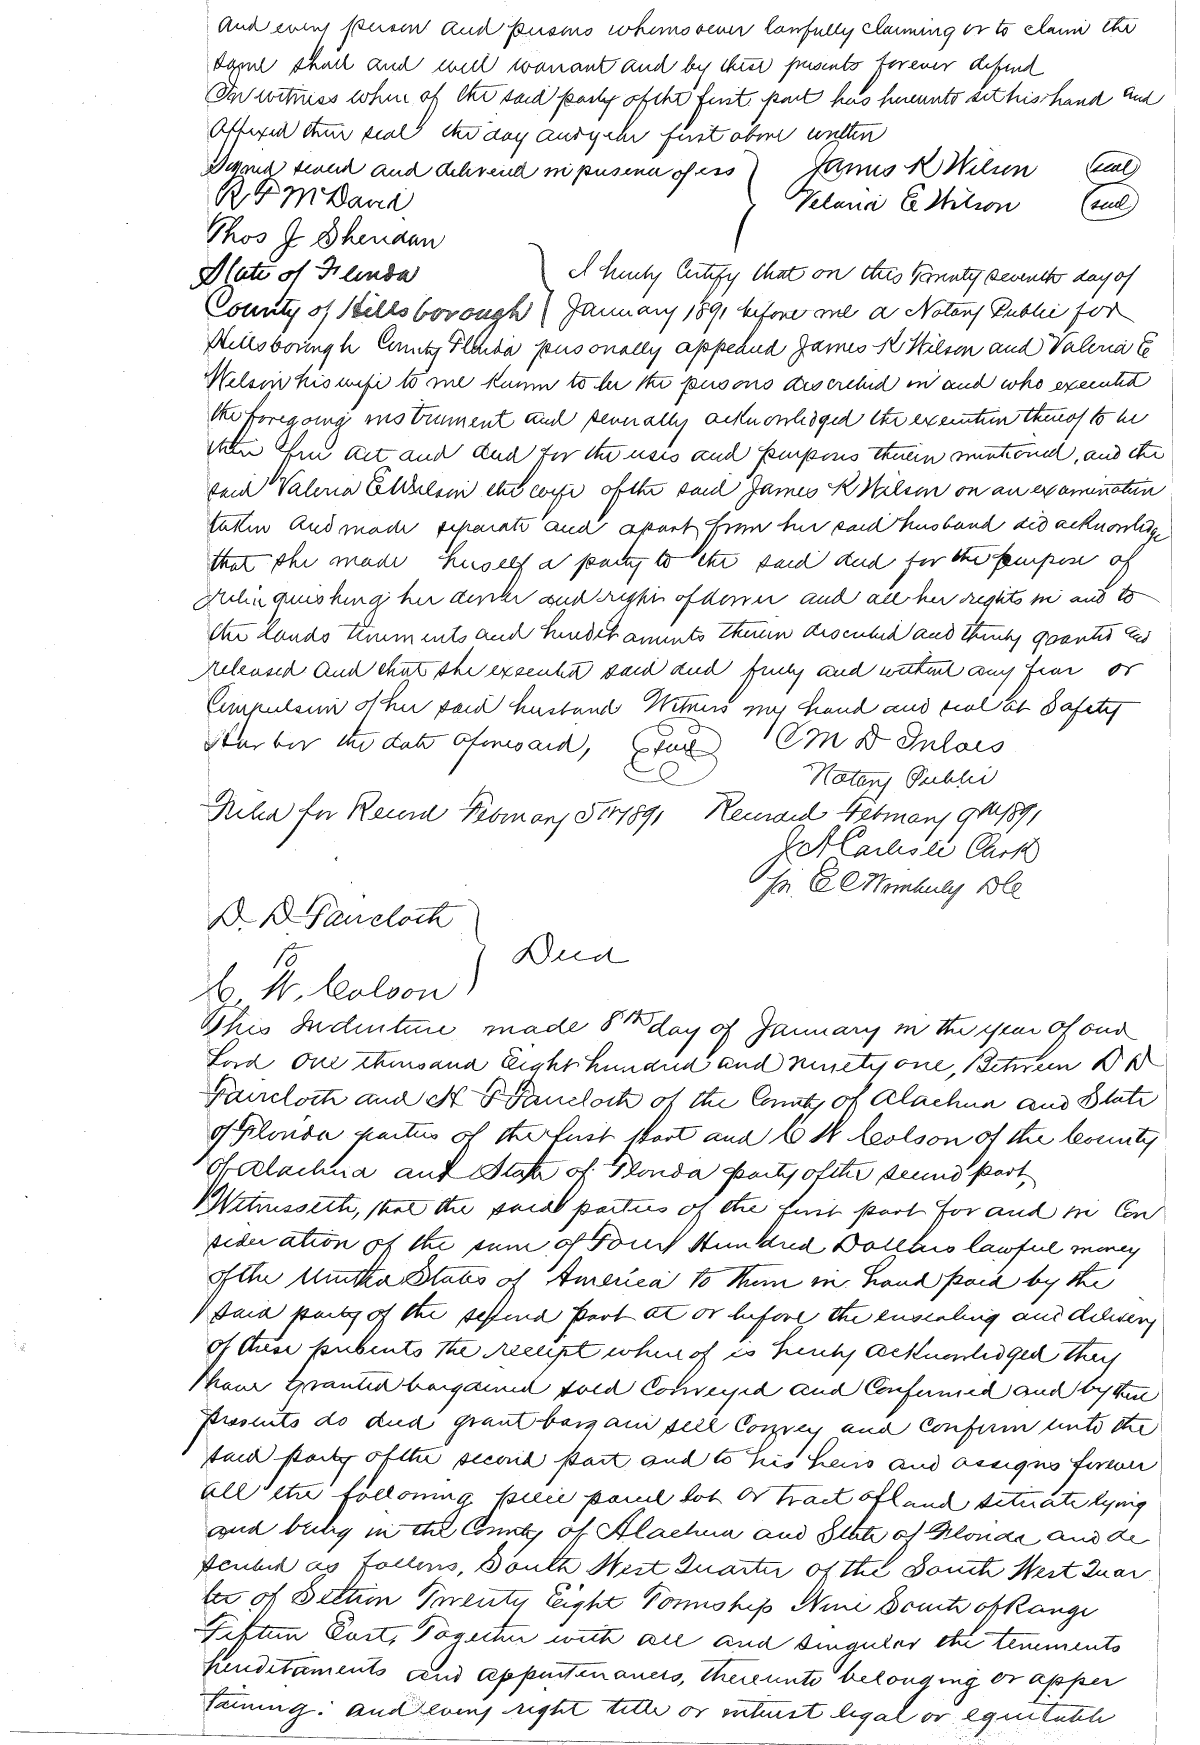 and every person and persons whomsoever lawfully claiming or to claim the
same shall and will warrant and by these presents forever defend
In witness where of the said party of the first part has hereunto set his hand and
affixed their seal the day and year first above written
Signed sealed and delivered in presence of ess } James K Wilson (seal)
R F McDavid Valaria E Wilson (seal)
Thos J Sheridan
State of Florida } I hereby Certify that on this Twenty seventh day of
County of Hillsborough } January 1891 before me a Notary Public for
Hillsborough County Florida personally appeared James K Wilson and Valeria E
Wilson his wife to me known to be the persons described in and who executed
the foregoing instrument and severally acknowledged the execution thereof to be
their free act and deed for the uses and purposes therein mentioned, and the
said Valeria E Wilson the wife of the said James K Wilson on an examination
taken and made separate and apart from her said husband did acknowledge
that she made herself a party to the said deed for the purpose of
relinquishing her dower and right of dower and all her rights in and to
the lands tenements and heredit aments therein described and thereby granted and
released and that she executed said deed freely and without any fear or
Compulsion of her said husband Witness my hand and seal at Safety
Harbor the date aforesaid, (Seal) C M D
Notary Public
Filed for Record February 5th 1891 Recorded February 9th 1891
J A Carlisle Clerk
pr. E C Wimberly DC
D. D. Faircloth
To } Deed
C. W. Colson
This Indenture made 8th day of January in the year of our
Lord One thousand Eight hundred and ninety one, Between D D
Faircloth and H F Faircloth of the County of Alachua and State
of Florida parties of the first part and C W Colson of the County
of Alachua and State of Florida party of the second part,
Witnesseth, that the said parties of the first part for and in Con
sideration of the sum of Four Hundred Dollars lawful money
of the United States of America to them in hand paid by the
said party of the second part at or before the ensealing and delivery
of these presents the receipt where of is hereby acknowledged they
have granted bargained sold Conveyed and Confirmed and by these
presents do deed grant bargain sell Convey and confirm unto the
said party of the second part and to his heirs and assigns forever
all the following piece parcel lot or tract of land situate lying
and being in the County of Alachua and State of Florida and de
scribed as follows, South West Quarter of the South West Quar
ter of Section Twenty Eight Township Nine South of Range
Fifteen East, Together with all and singular the tenements
hereditaments and appurtenances, thereunto belonging or apper
taining: and every right title or interest legal or equitable